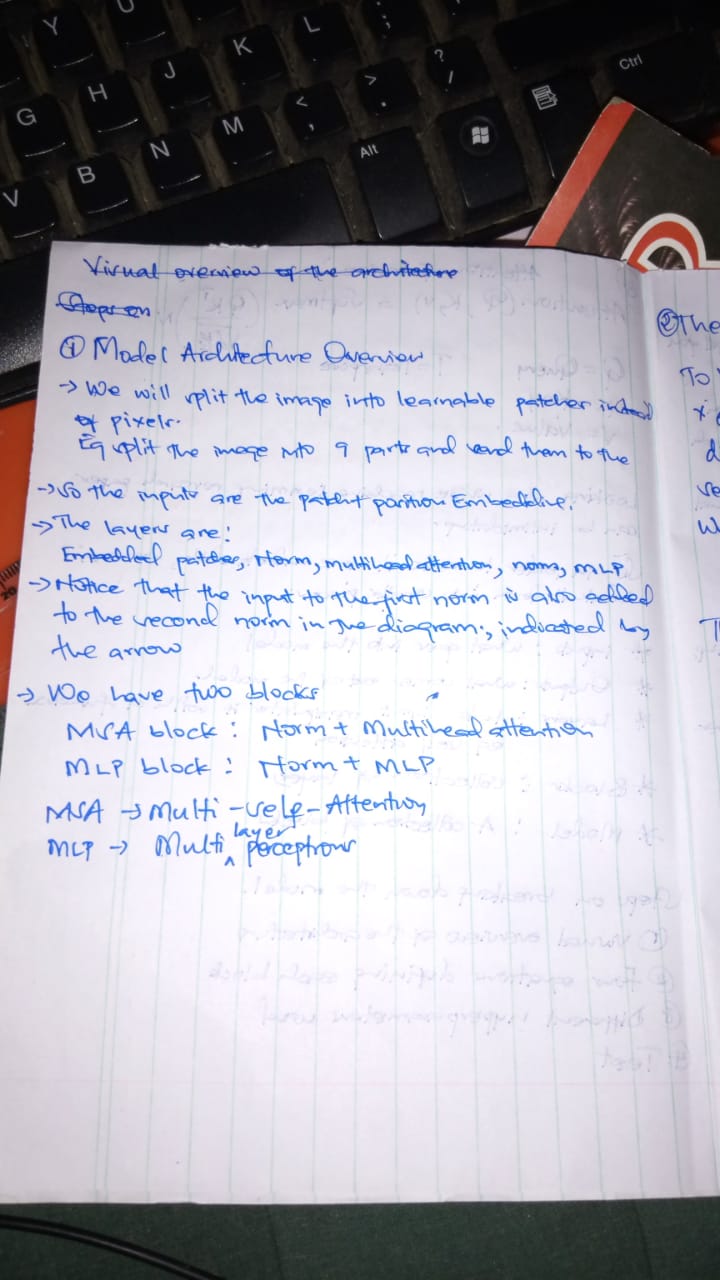 Y
U
G
H
J
K
L
:
;
V
B
N
M
<
,
>
.
?
/
Alt
Ctrl
Visual overview of the architecture
Steps on
① Model Architecture Overview
→ We will split the image into learnable patches instead
of pixels.
Eg split the image into 9 parts and send them to the
→ So the inputs are the patch position Embedding.
→ The layers are:
Embedded patches, Norm, multihead attention, norm, MLP
→ Notice that the input to the first norm is also added
to the second norm in the diagram, indicated by
the arrow
→ We have two blocks
MSA block : Norm + Multihead attention
MLP block : Norm + MLP
MSA → Multi-self-Attention
MLP → Multi layer perceptrons
② The
To
*
d
W
T